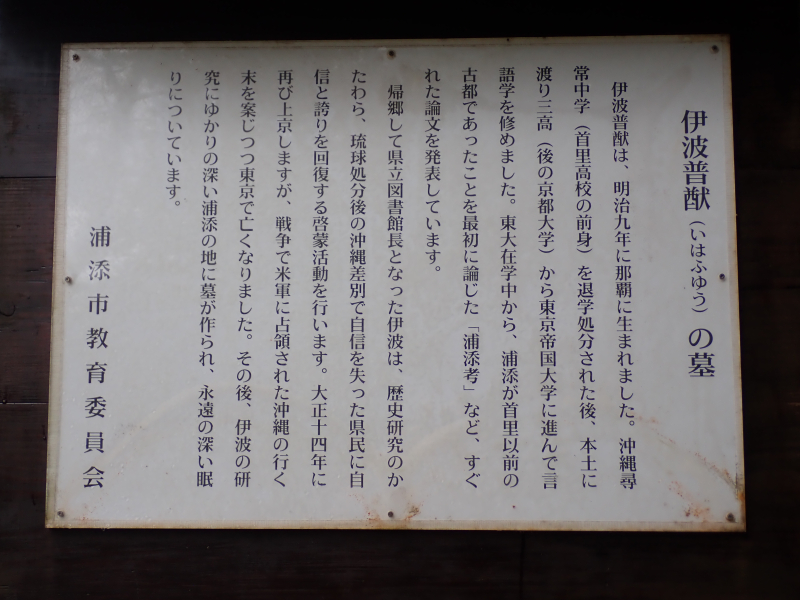 伊波普猷（いはふゆう）の墓
伊波普猷は、明治九年に那覇に生まれました。沖縄尋
常中学（首里高校の前身）を退学処分された後、本土に
渡り三高（後の京都大学）から東京帝国大学に進んで言
語学を修めました。東大在学中から、浦添が首里以前の
古都であったことを最初に論じた「浦添考」など、すぐ
れた論文を発表しています。
帰郷して県立図書館長となった伊波は、歴史研究のか
たわら、琉球処分後の沖縄差別で自信を失った県民に自
信と誇りを回復する啓蒙活動を行います。大正十四年に
再び上京しますが、戦争で米軍に占領された沖縄の行く
末を案じつつ東京で亡くなりました。その後、伊波の研
究にゆかりの深い浦添の地に墓が作られ、永遠の深い眠
りについています。
浦添市教育委員会